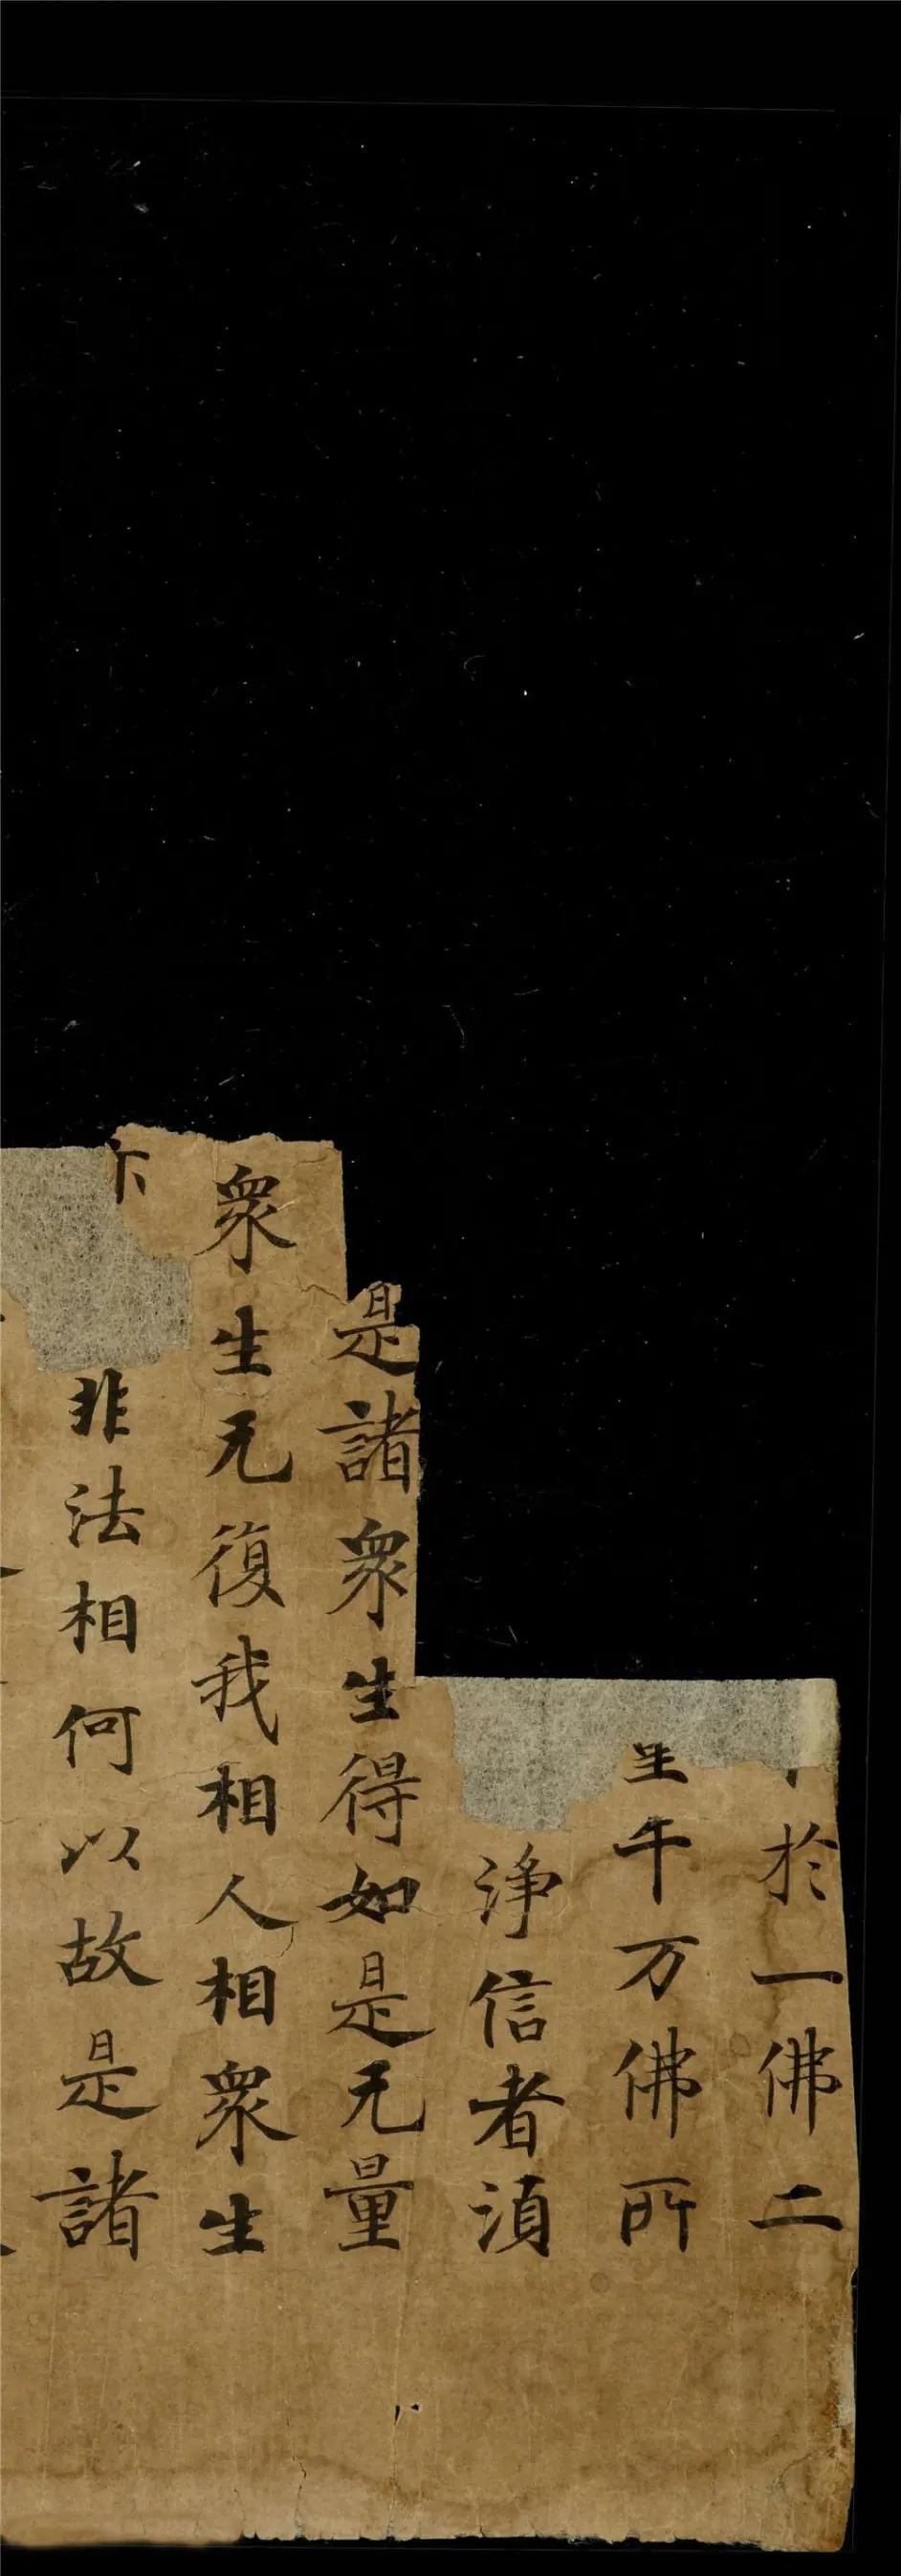 於一佛二
生千万佛所
淨信者湏
是諸衆生得如是无量
衆生无復我相人相衆生
非法相何以故是諸